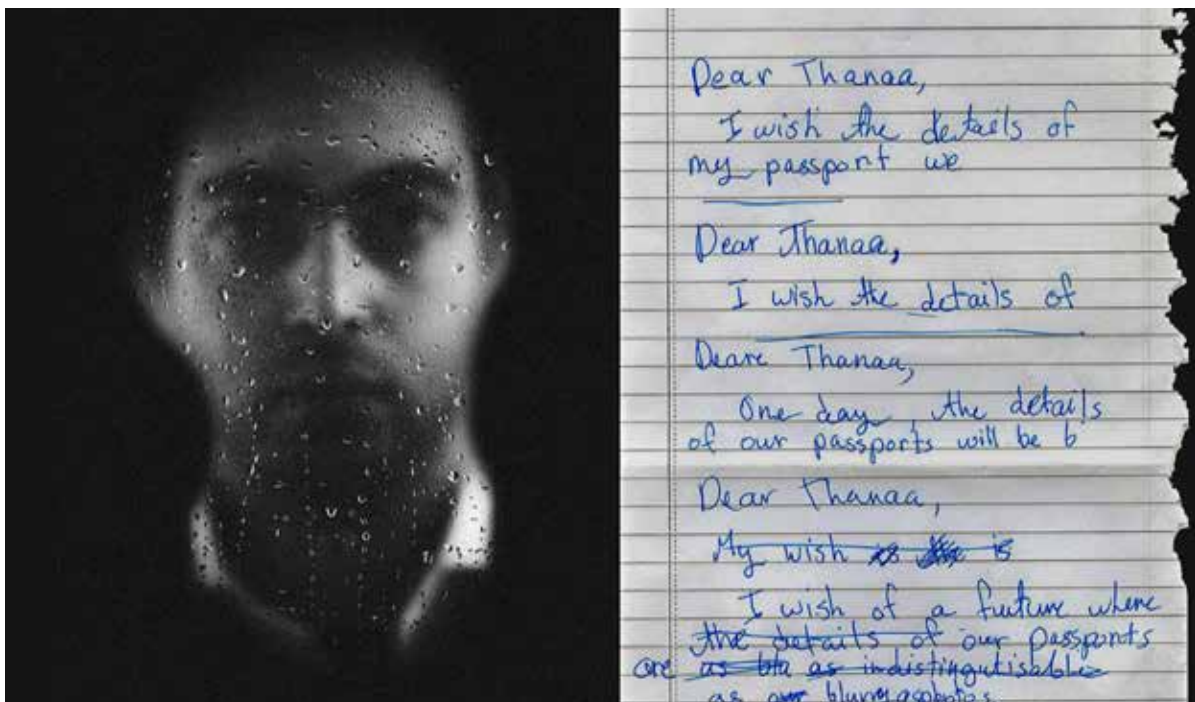 Dear Thanaa,
I wish the details of
my passport we
Dear Thanaa,
I wish the details of
Deare Thanaa,
One day, the details
of our passports will be b
Dear Thanaa,
My wish is is
I wish of a fuuture where
the details of our passports
are as bla as indistingutisable
as our blurry